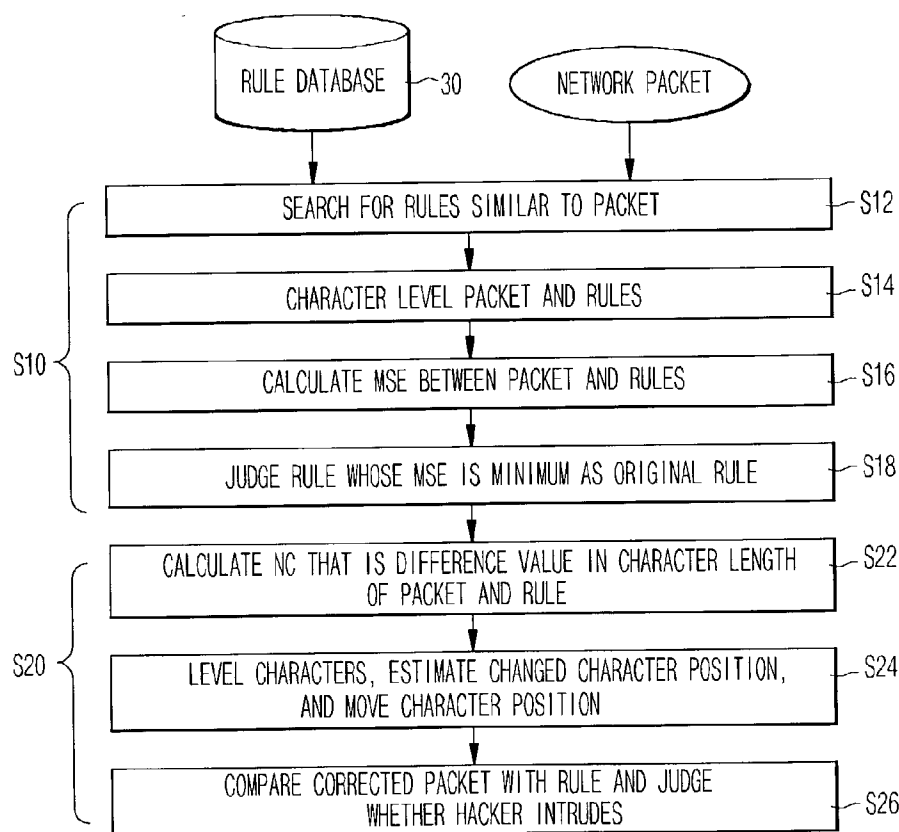 RULE DATABASE
30
NETWORK PACKET
SEARCH FOR RULES SIMILAR TO PACKET
S12
CHARACTER LEVEL PACKET AND RULES
S14
S10
CALCULATE MSE BETWEEN PACKET AND RULES
S16
JUDGE RULE WHOSE MSE IS MINIMUM AS ORIGINAL RULE
S18
CALCULATE NC THAT IS DIFFERENCE VALUE IN CHARACTER LENGTH
OF PACKET AND RULE
S22
S20
LEVEL CHARACTERS, ESTIMATE CHANGED CHARACTER POSITION,
AND MOVE CHARACTER POSITION
S24
COMPARE CORRECTED PACKET WITH RULE AND JUDGE
WHETHER HACKER INTRUDES
S26